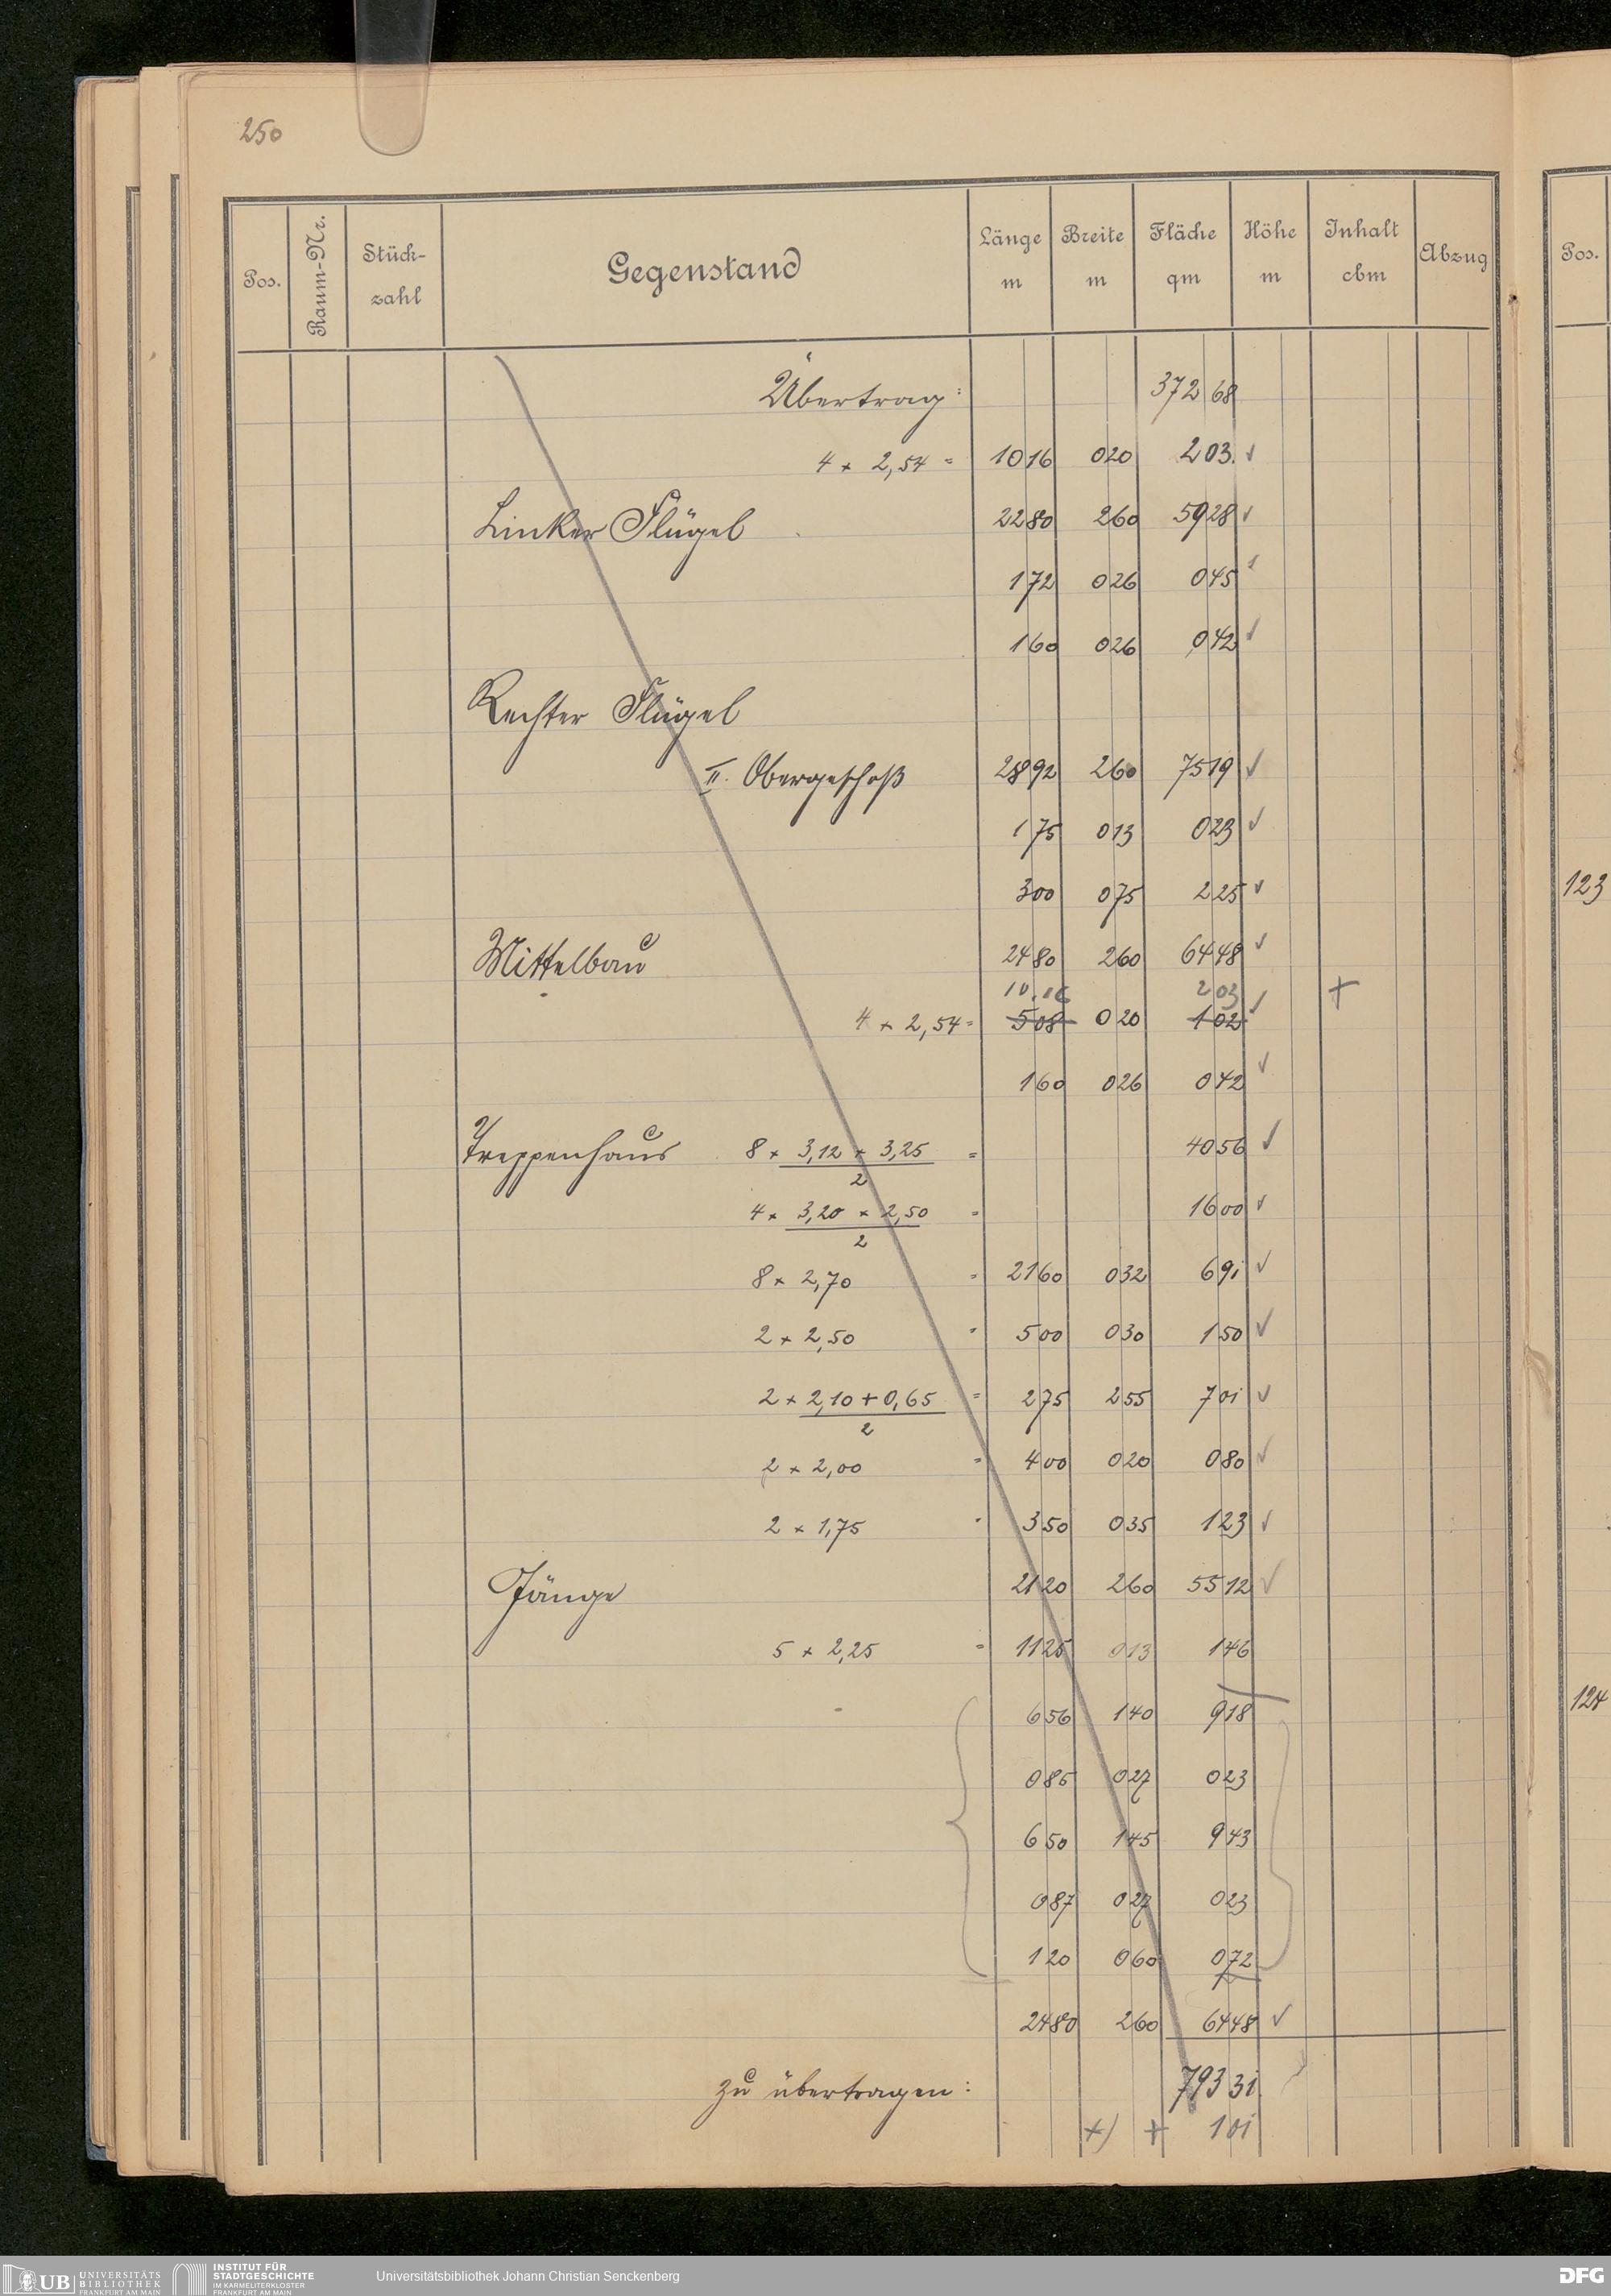 250
Pos. Raum-Nr. Stück-zahl Gegenstand Länge m Breite m Fläche qm Höhe m Inhalt cbm Abzug Pos.
Übertrag: 372 68
4 × 2,54 = 10 16 0 20 2 03. ✓
Linker Flügel 22 80 2 60 59 28 ✓
1 72 0 26 0 45
1 60 0 26 0 42 ✓
Rechter Flügel
II. Obergeschoß 28 92 2 60 75 19 ✓
1 75 0 13 0 23 ✓
3 00 0 75 2 25 ✓
123
Mittelbau 24 80 2 60 64 48 ✓
10.16 2 03 +
4 × 2,54 = 5 08 0 20 1 02 ✓
1 60 0 26 0 42 ✓
Treppenhaus 8 × 3,12 × 3,25 = 40 56 ✓
2
4 × 3,20 × 2,50 = 16 00 ✓
2
8 × 2,70 = 21 60 0 32 6 91 ✓
2 × 2,50 = 5 00 0 30 1 50 ✓
2 × 2,10 + 0,65 = 2 75 2 55 7 01 ✓
2
2 × 2,00 = 4 00 0 20 0 80 ✓
2 × 1,75 = 3 50 0 35 1 23 ✓
Gänge 21 20 2 60 55 12 ✓
5 × 2,25 = 11 25 0 13 1 46
6 56 1 40 9 18
124
0 85 0 27 0 23
6 50 1 45 9 43
0 87 0 27 0 23
1 20 0 60 0 72
24 80 2 60 64 48 ✓
zu übertragen: 793 31
+) + 1 01
UB UNIVERSITÄTS
BIBLIOTHEK
FRANKFURT AM MAIN
INSTITUT FÜR
STADTGESCHICHTE
IM KARMELITERKLOSTER
FRANKFURT AM MAIN
Universitätsbibliothek Johann Christian Senckenberg
DFG